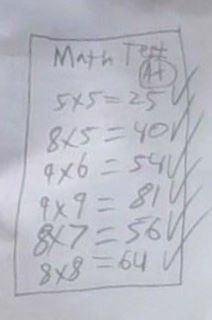 Math Test
A+
5x5=25
8x5=40
9x6=54
9x9=81
8x7=56
8x8=64